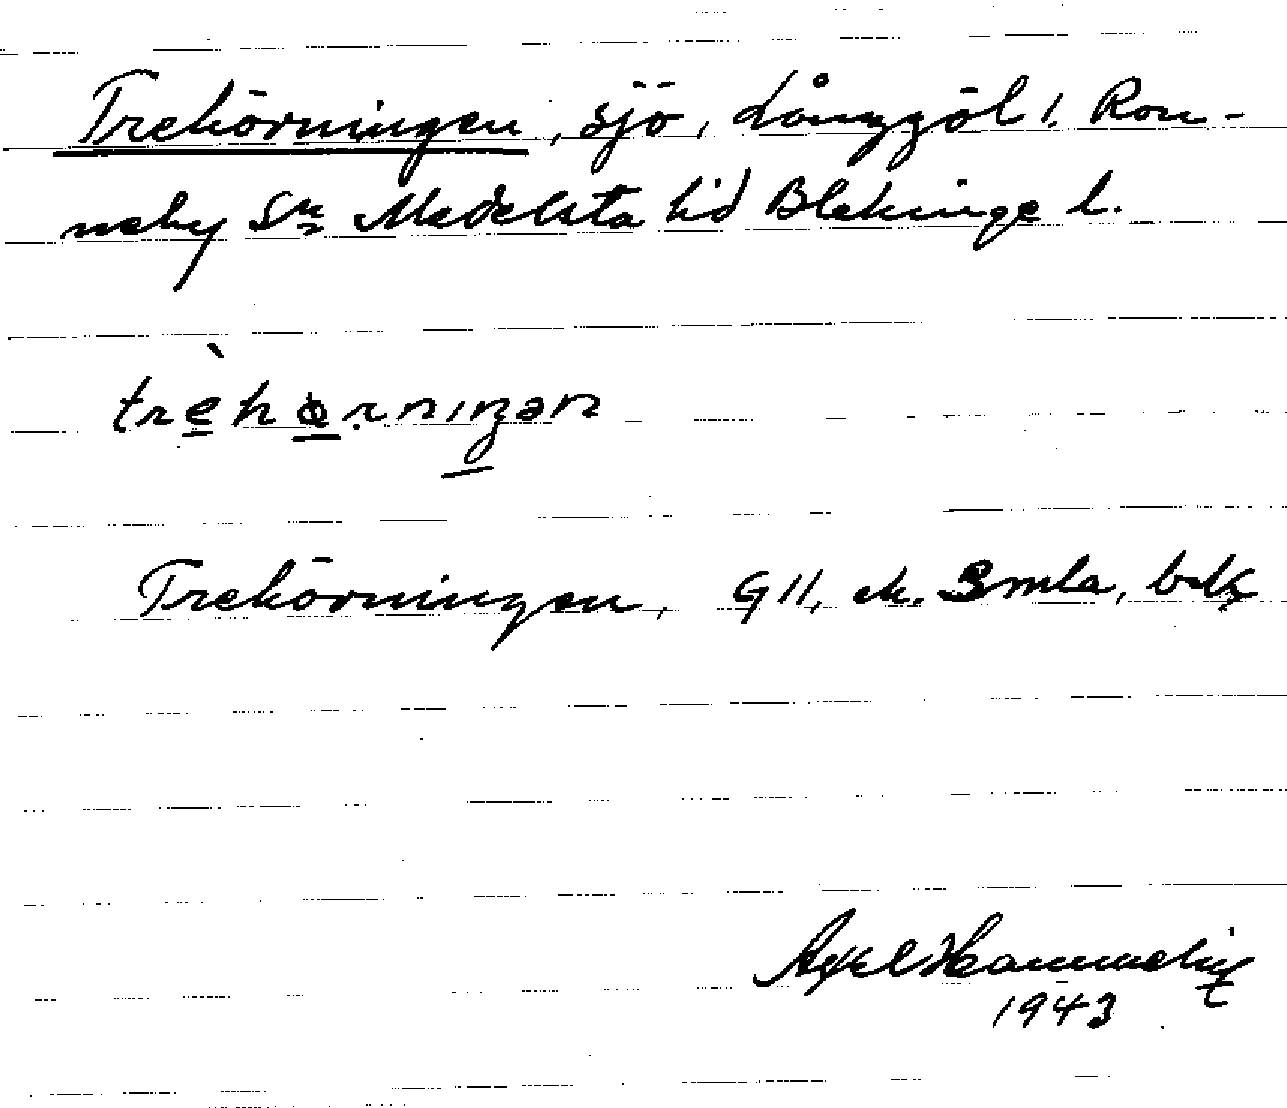 Trehörningen, sjö, Långgöl, Ron-
neby Sn Medelsta hd Blekinge l.
trèhørniŋən
Trehörningen, G11, ek. Smla,
Axel
1943